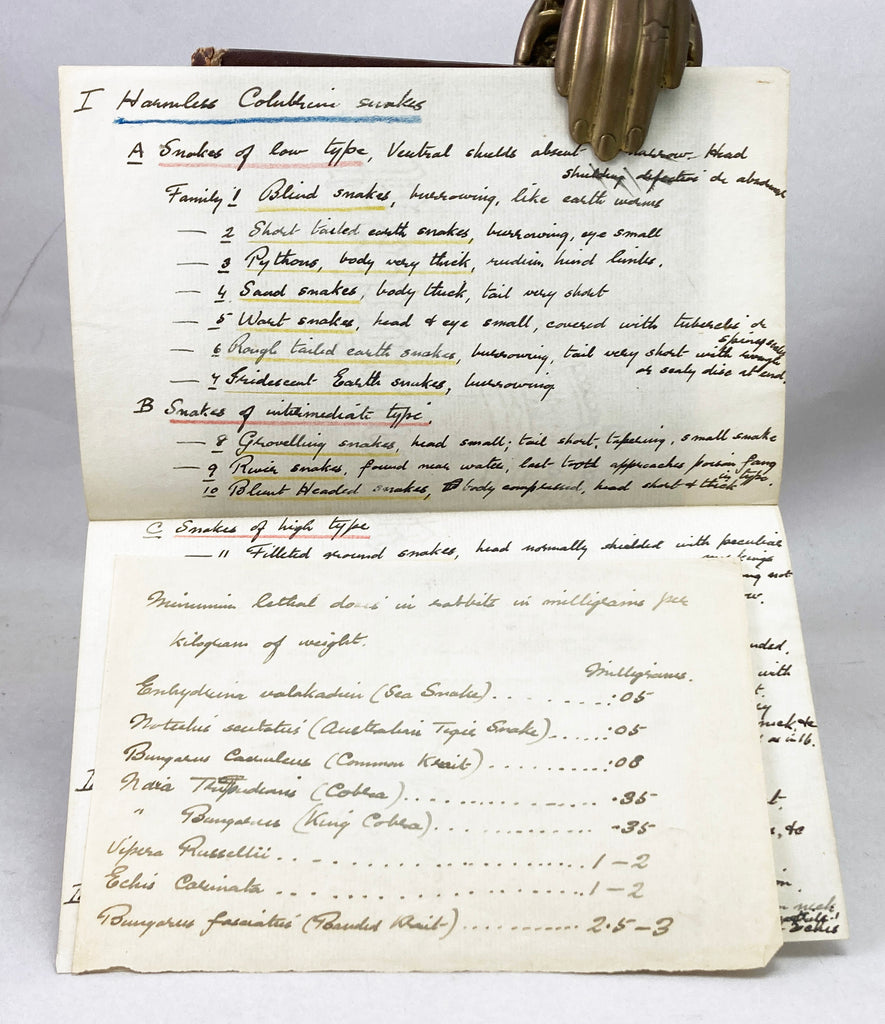 I Harmless Colubrine snakes
A Snakes of low type, Ventral shields absent narrow. Head
shielding defective or absent
Family 1 Blind snakes, burrowing, like earth worms
— 2 Short tailed earth snakes, burrowing, eye small
— 3 Pythons, body very thick, rudim. hind limbs.
— 4 Sand snakes, body thick, tail very short
— 5 Wart snakes, head & eye small, covered with tubercles or
spiny scales
— 6 Rough tailed earth snakes, burrowing, tail very short with rough
or scaly disc at end.
— 7 Iridescent Earth snakes, burrowing
B Snakes of intermediate type.
— 8 Grovelling snakes, head small; tail short, tapering, small snake
— 9 River snakes, found near water, last tooth approaches poison fang
in type.
10 Blunt Headed snakes, body compressed, head short & thick
C Snakes of high type
— 11 Filleted ground snakes, head normally shielded with peculiar
markings
not
with
neck, &c
&c
neck
Minimum lethal doses in rabbits in milligrams per
kilogram of weight.
Milligrams.
Enhydrina valakadien (Sea Snake) . . . . . . . . : 05
Notechis scutatus (Australian Tiger Snake) . . . . . : 05
Bungarus Caeruleus (Common Krait) . . . . . . . : 08
Naia Tripudians (Cobra) . . . . . . . . . . . . . . · 35
" Bungarus (King Cobra) . . . . . . . . . . . . · 35
Vipera Russellii . . . . . . . . . . . . . . . . . . 1 – 2
Echis Carinata . . . . . . . . . . . . . . . . . . 1 – 2
Bungarus fasciatus (Banded Krait) . . . . . . . . . . 2·5 – 3